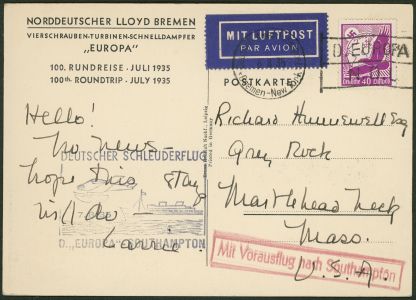 NORDDEUTSCHER LLOYD BREMEN
VIERSCHRAUBEN-TURBINEN-SCHNELLDAMPFER
„EUROPA"
100. RUNDREISE · JULI 1935
100th ROUNDTRIP · JULY 1935
MIT LUFTPOST
PAR AVION
POSTKARTE
Bremen-New York
D. EUROPA
40
Hello!
No news –
hope this stamp
will do –
DEUTSCHER SCHLEUDERFLUG
D. „EUROPA" - SOUTHAMPTON
Printed in Germany
Richard Hunnewell Esq
Grey Rock
Marblehead Neck
Mass.
U.S.A.
Mit Vorausflug nach Southampton